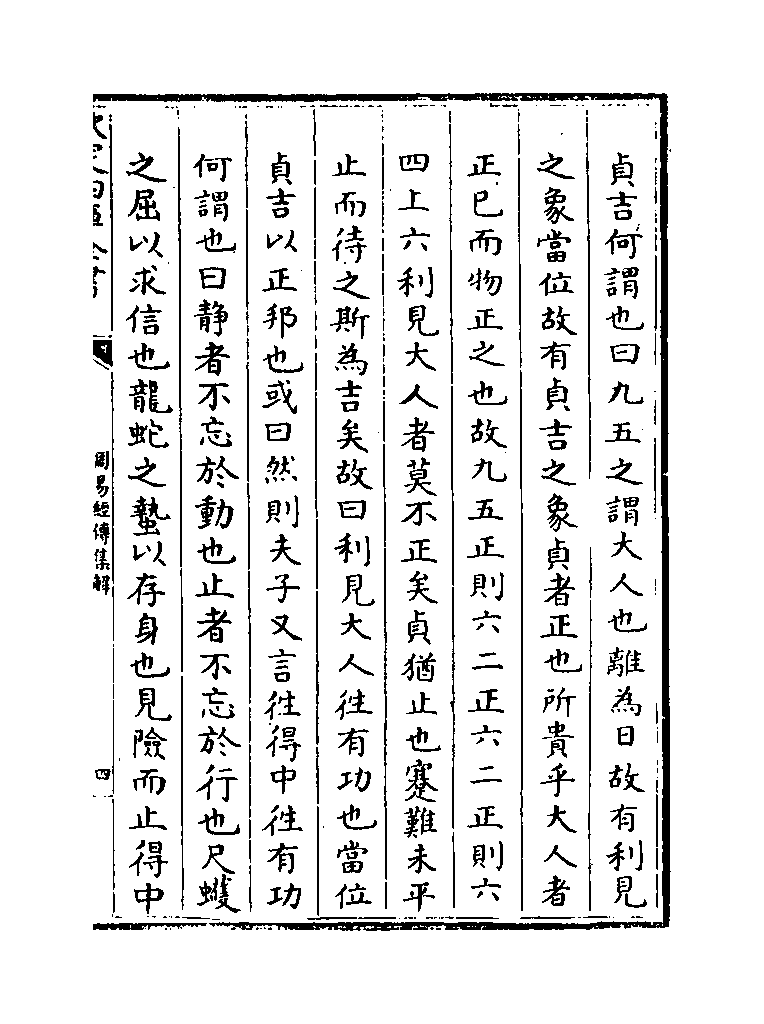 貞吉何謂也曰九五之謂大人也離為日故有利見
之象當位故有貞吉之象貞者正也所貴乎大人者
正己而物正之也故九五正則六二正六二正則六
四上六利見大人者莫不正矣貞猶止也蹇難未平
止而待之斯為吉矣故曰利見大人徃有功也當位
貞吉以正邦也或曰然則夫子又言徃得中徃有功
何謂也曰静者不忘於動也止者不忘於行也尺蠖
之屈以求信也龍蛇之蟄以存身也見險而止得中
周易經傳集解
四